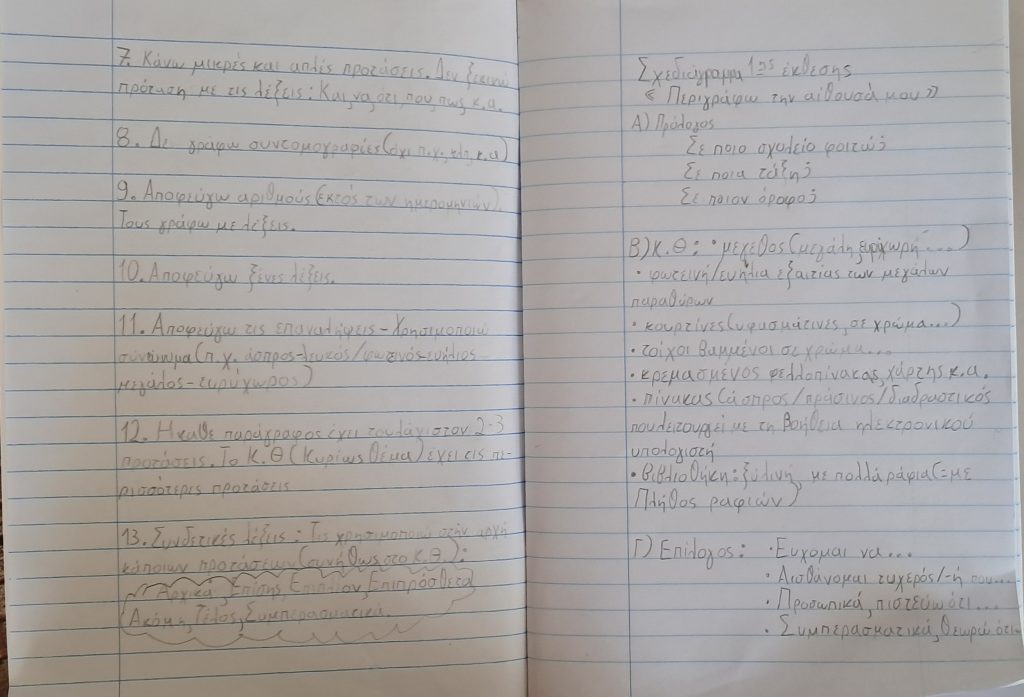 7. Κάνω μικρές και απλές προτάσεις. Δεν ξεκινώ
πρόταση με τις λέξεις: Και, να, ότι, που, πως κ.α.
8. Δε γράφω συντομογραφίες (όχι π.χ., κλπ, κ.α)
9. Αποφεύγω αριθμούς (εκτός των ημερομηνιών).
Τους γράφω με λέξεις.
10. Αποφεύγω ξένες λέξεις.
11. Αποφεύγω τις επαναλήψεις - Χρησιμοποιώ
συνώνυμα (π.χ. άσπρος-λευκός/φωτεινός-ευήλιος
μεγάλος-ευρύχωρος)
12. Η καθε παράγραφος έχει τουλάχιστον 2-3
προτάσεις. Το Κ.Θ (Κυρίως θέμα) έχει τις πε-
ρισσότερες προτάσεις
13. Συνδετικές λέξεις: Τις χρησιμοποιώ στην αρχή
κάποιων προτάσεων (συνήθως στο Κ.Θ.):
Αρχικά, Επίσης, Επιπλέον, Επιπρόσθετα
Ακόμη, Τέλος, Συμπερασματικά.
Σχεδιάγραμμα 1ης έκθεσης
« Περιγράφω την αίθουσά μου »
Α) Πρόλογος
Σε ποιο σχολείο φοιτώ;
Σε ποια τάξη;
Σε ποιον όροφο;
Β) Κ.Θ: • μεγεθος (μεγάλη, ευρύχωρη ...)
• φωτεινή/ευήλια εξαιτίας των μεγάλων
παραθύρων
• κουρτίνες (υφασμάτινες, σε χρώμα...)
• τοίχοι βαμμένοι σε χρώμα...
• κρεμασμένος φελλοπίνακας, χάρτης κ.α.
• πίνακας (άσπρος/πράσινος/διαδραστικός
που λειτουργεί με τη βοήθεια ηλεκτρονικού
υπολογιστή
• βιβλιοθήκη: ξύλινη, με πολλά ράφια (= με
Πλήθος ραφιών)
Γ) Επίλογος: • Εύχομαι να...
• Αισθάνομαι τυχερός/-ή που...
• Προσωπικά, πιστεύω ότι...
• Συμπερασματικά, θεωρώ ότι...